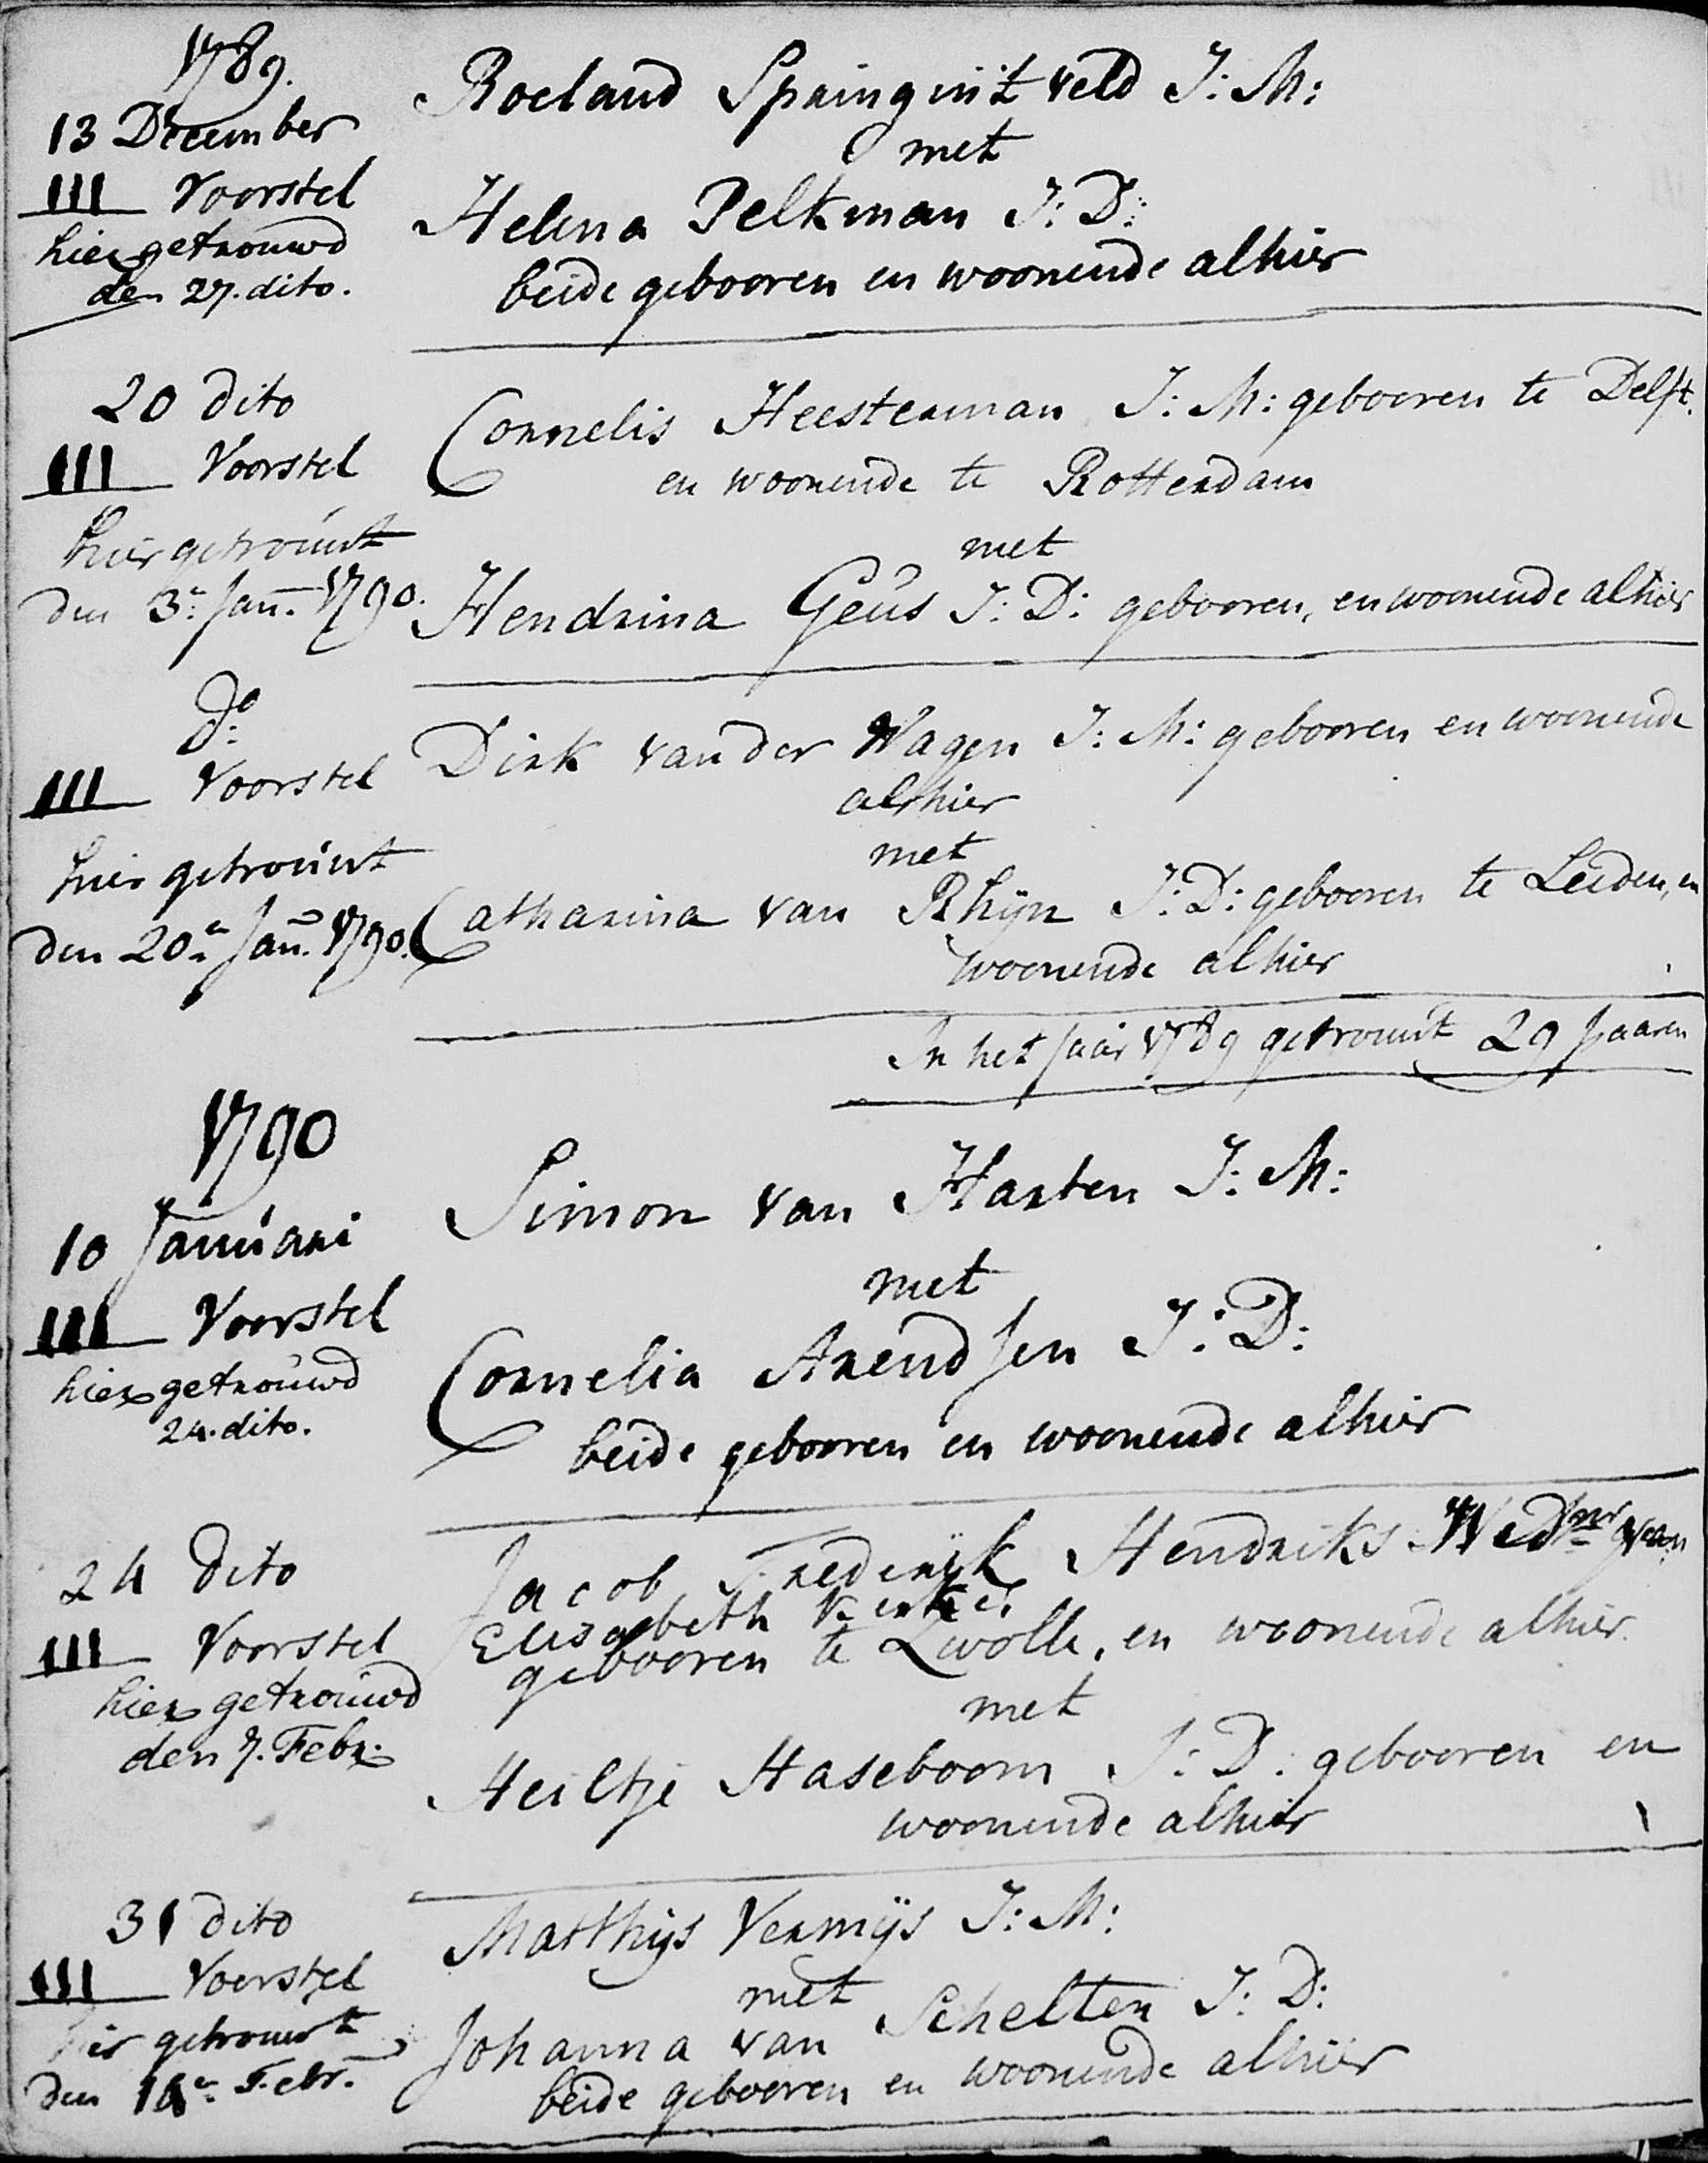 1789.
13 December
III Voorstel
hier getrouwd
den 27. dito.
Roeland Springint veld J: M:
met
Helena Pelkman J: D:
beide gebooren en woonende alhier
20 dito
III Voorstel
hier getrouwt
den 3e Jan. 1790.
Cornelis Heesterman J: M: gebooren te Delft.
en woonende te Rotterdam
met
Hendrina Geus J: D: gebooren, en woonende alhier
Do.
III Voorstel
hier getrouwt
den 20e Jan. 1790.
Dirk van der Wagen J: M: gebooren en woonende
alhier
met
Catharina van Rhijn J: D: gebooren te Leiden, en
woonende alhier
In het Jaar 1789 getrouwt 29 paaren
1790
10 Januari
III Voorstel
hier getrouwd
24. dito.
Simon van Harten J: M:
met
Cornelia Arendsen J: D:
beide gebooren en woonende alhier
24 dito
III Voorstel
hier getrouwd
den 7. Febr.
Jacob Frederijk Hendriks Wednr van
Elisabeth
gebooren te Zwolle, en woonende alhier.
met
Heiltje Haseboom J: D: gebooren en
woonende alhier
31 dito
III Voorstel
hier getrouwt
den Febr.
Matthijs Vermijs J: M:
met
Johanna van Schelten J: D:
beide gebooren en woonende alhier